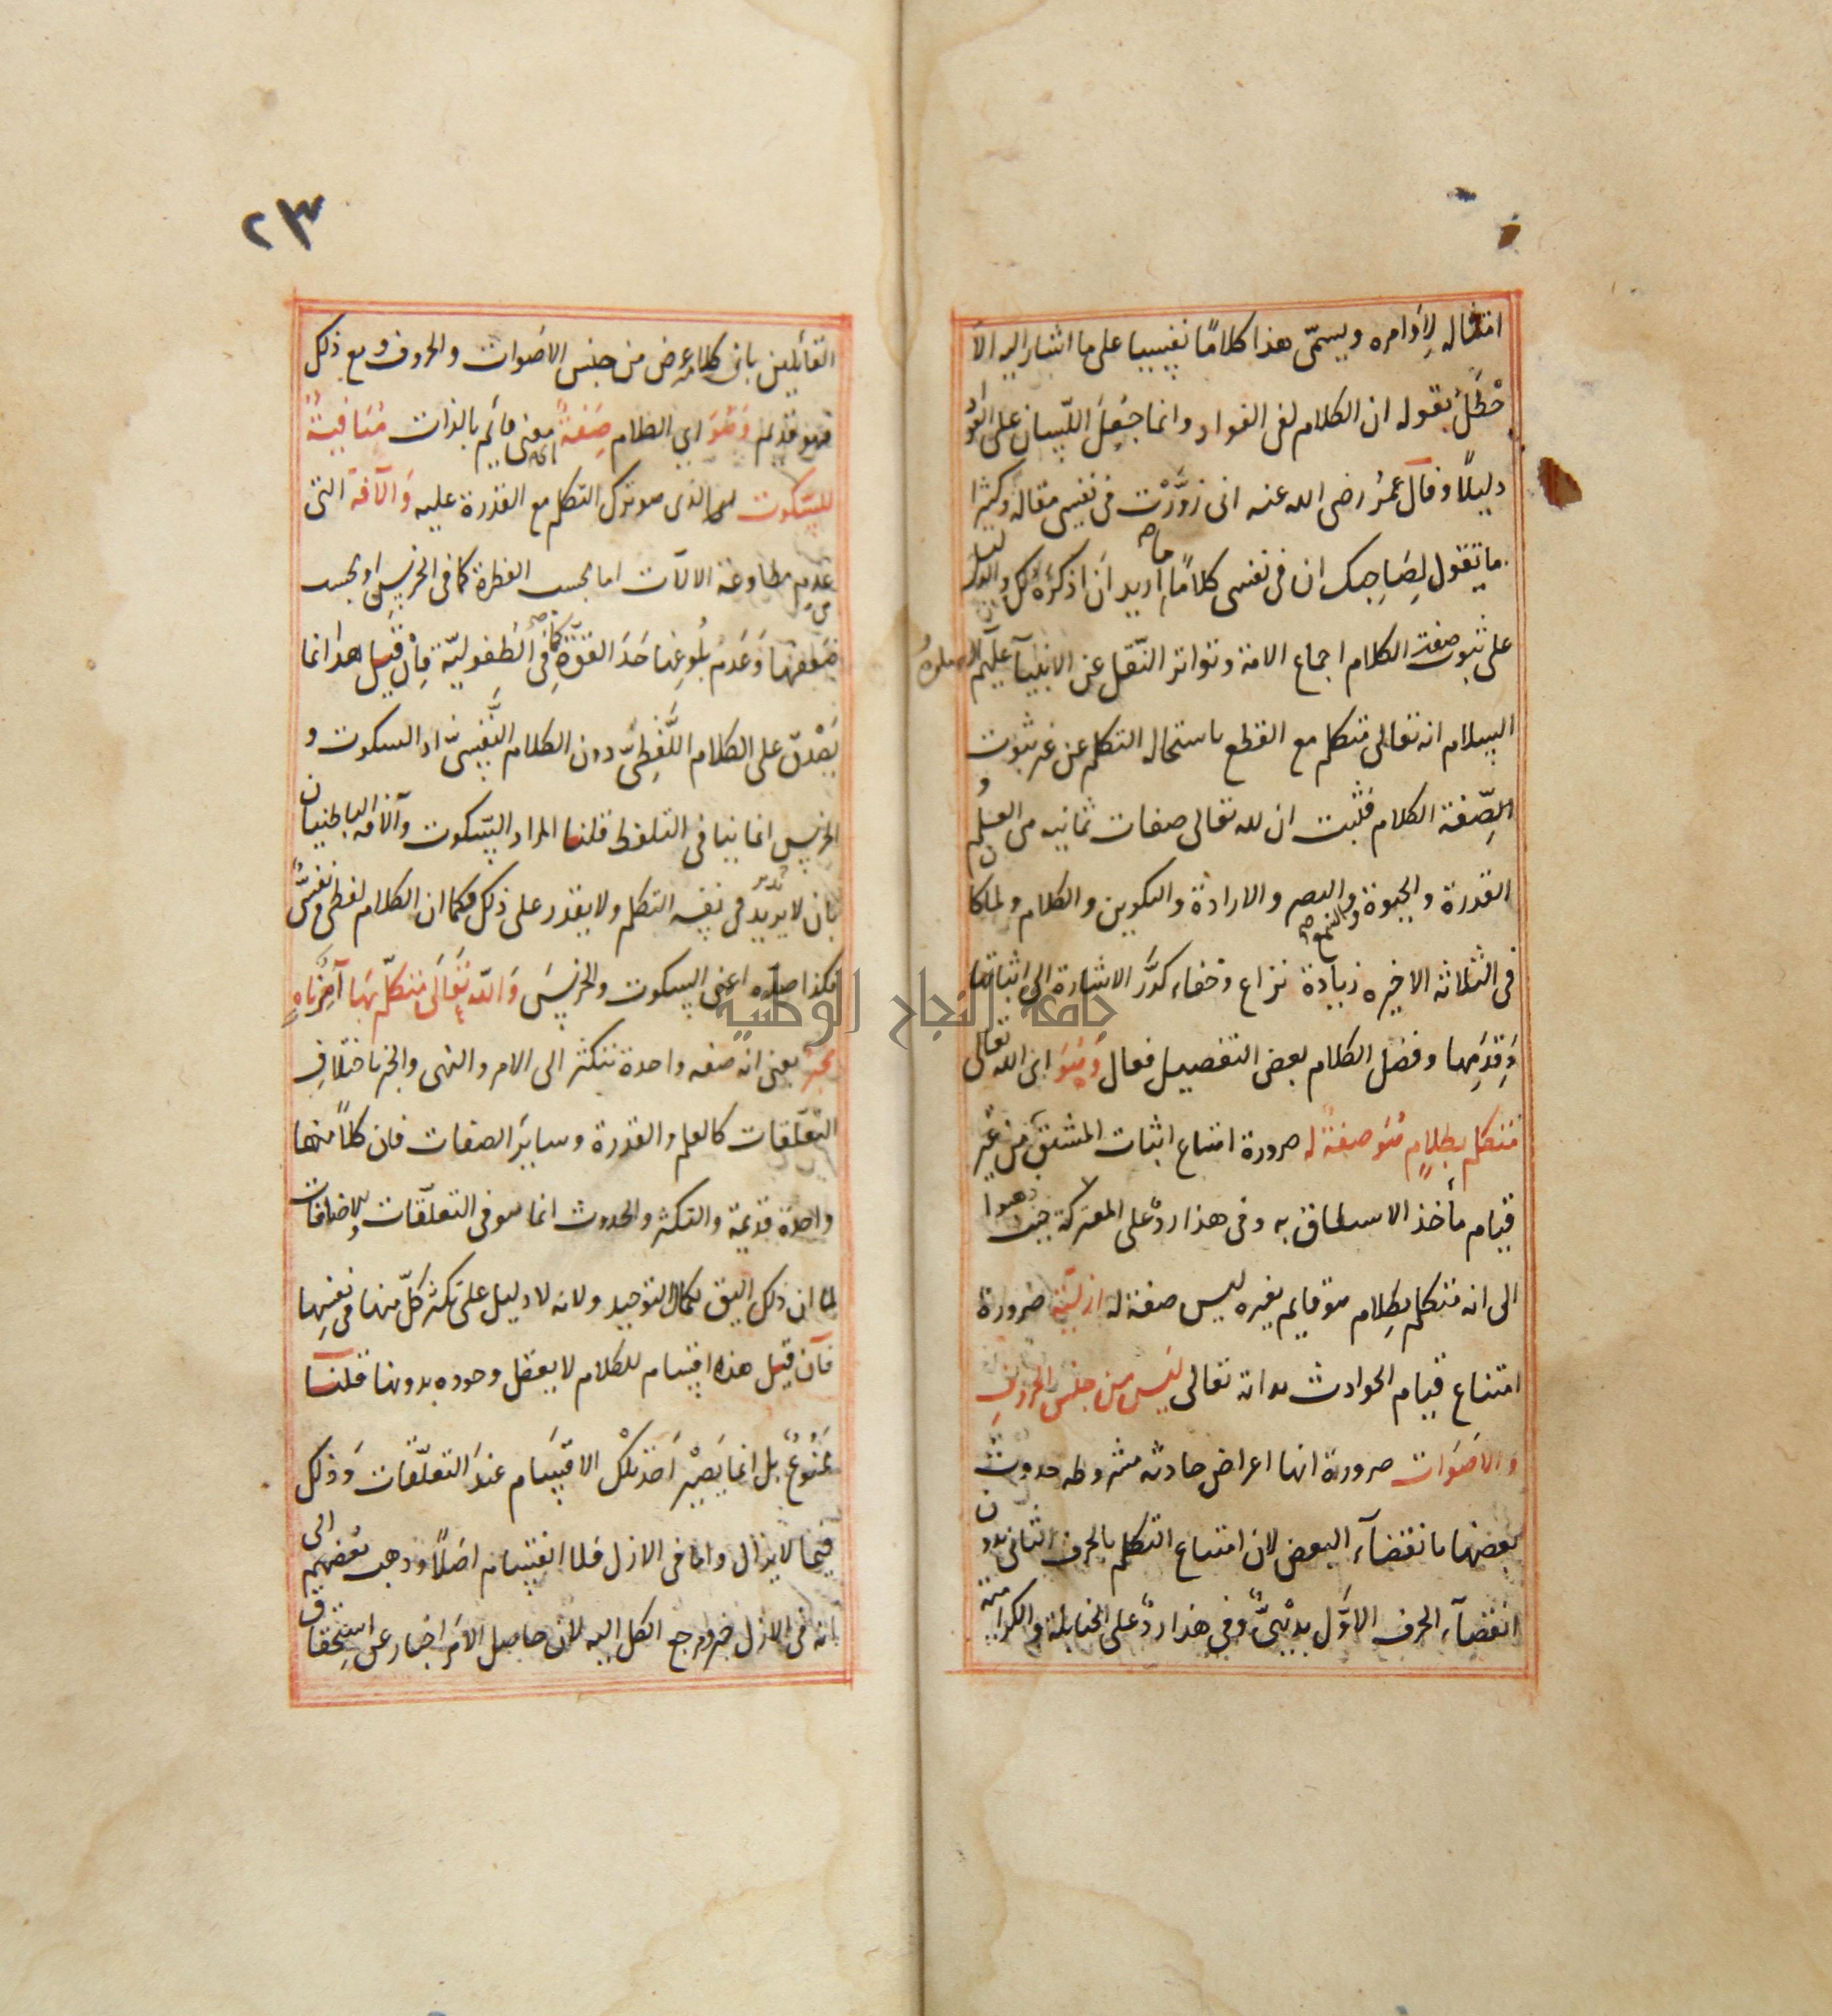 امتثاله لِأوامره ويسمّى هذا كلامًا نفسيا على ما اشار اليه الأ
خْطَلُ بقوله ان الكلام لفى الفواد وانما جُعِلَ اللّسان على الفواد
دليلًا وقال عمرُ رضى الله عنه انى زوَّرْت فى نفسى مقالة وكثيرا
ما يتقول لِصَاحِبك ان فى نفسى كلامًا اريد اَن اذكرَهُ لكَ والدليل
على ثبوت صفت الكلام اجماع الامة وتواتر النّقل عن الانبياَء عليهم الصلوة
السلام انه تعالى متكلم مع القطع باستحالة التكلم عن غير ثبوت
الصِّفة الكلام فثبت ان لله تعالى صفات ثمانيه هى العلم و
القدرة والحيوة والسمع والبصر والارادة والتكوين والكلام ولما كان
فى الثلاثة الاخيره زيادة نزاع وخفاء كرَّر الاشارة الى اثباتها
وَقِدَمِها وفصّل الكلام بعض التفصيل فقال وَهُوَ اى الله تعالى
متكلم بكلامٍ هُوَ صفةٌ له ضرورة امتناع اثبات المشتقّ من غَير
قيام مأخذ الاشتقاق به وفى هذا ردّ على المعتزلة حيث ذهبوا
الى انه متكلم بكلام هو قايم بغيره ليس صفة له ازليّة ضرورة
امتناع قيام الحوادث بذاته تعالى لَيس من جنس الحروفِ
وَالاَصْوَات ضرورة انها اعراض حادثه مشروطه حدوثُ
بعضها بانقضآء البعض لان امتناع التكلم بالحرف الثانى بدون
انقضآء الحرف الاوَّل بديْهىٌّ وفى هذا ردٌّ على الحنابلة والكراميّة
٢٣
القائِلين بان كلامه عرض من جنس الاَصْوات والحروف ومع ذلكَ
فهو قديم وَهُوَ اي الكلام صِفةٌ اى معنى قايَم بالذات مُنَافيَةٌ
للسّكوت الذى هو ترك التكلم مع القدرة عليه وَالآفة التى
هى عدم مطاوعة الالآت اما بحسب الفطرة كما فى الخرس او بحسب
ضعفها وَعَدَمُ بلُوغِها حَدَ القوَّة كما فى الطُفوليّة فاِنْ قيل هذا انما
يَصْدق على الكلام اللَّفْظِىّ دون الكلام النَّفْسِىّ اذ السكوت و
الخرس انما ينافى التلفظ قلنا المراد السّكوت وَالآفة الباطنيان
بان لا يريد فى نفسه التكلم ولا يقدر على ذلك فكما ان الكلام لفظى ونفسىٌّ
فكذا ضدّه اعنى السكوت والخرسَ وَاللّه تَعَالَى متكلّم بهَا آمِرٌ نَاهٍ
مخبرٌ يعنى انه صفه واحدة تتكثر الى الامر والنهى والخبر باختلافِ
التعلّقات كالعلم والقدرة وسايَر الصفات فان كلًا منها
واحدة قديمة والتكثر والحدوث انما هو فى التعلّقات والاضافات
لما ان ذلك اليق بكمال التوحيد ولانه لا دليل على تكثر كلّ منها فى نفسِها
فآن قيل هذه اقسام للكلام لا يعقل وجوده بدونها قلنا
مَمْنُوعٌ بل انما يَصِيْر اَحَدَ تلكْ الاقسَام عندَ التعلّقات وَذلكَ
فيما لا يزال واما فى الازل فلا انقسام اصْلًا وذهب بعضهم الى
انه فى الازل خبر ومرجع الكل اليه لان حاصل الاَمْر اخبار عن استِحقاق
جامعة النجاح الوطنية